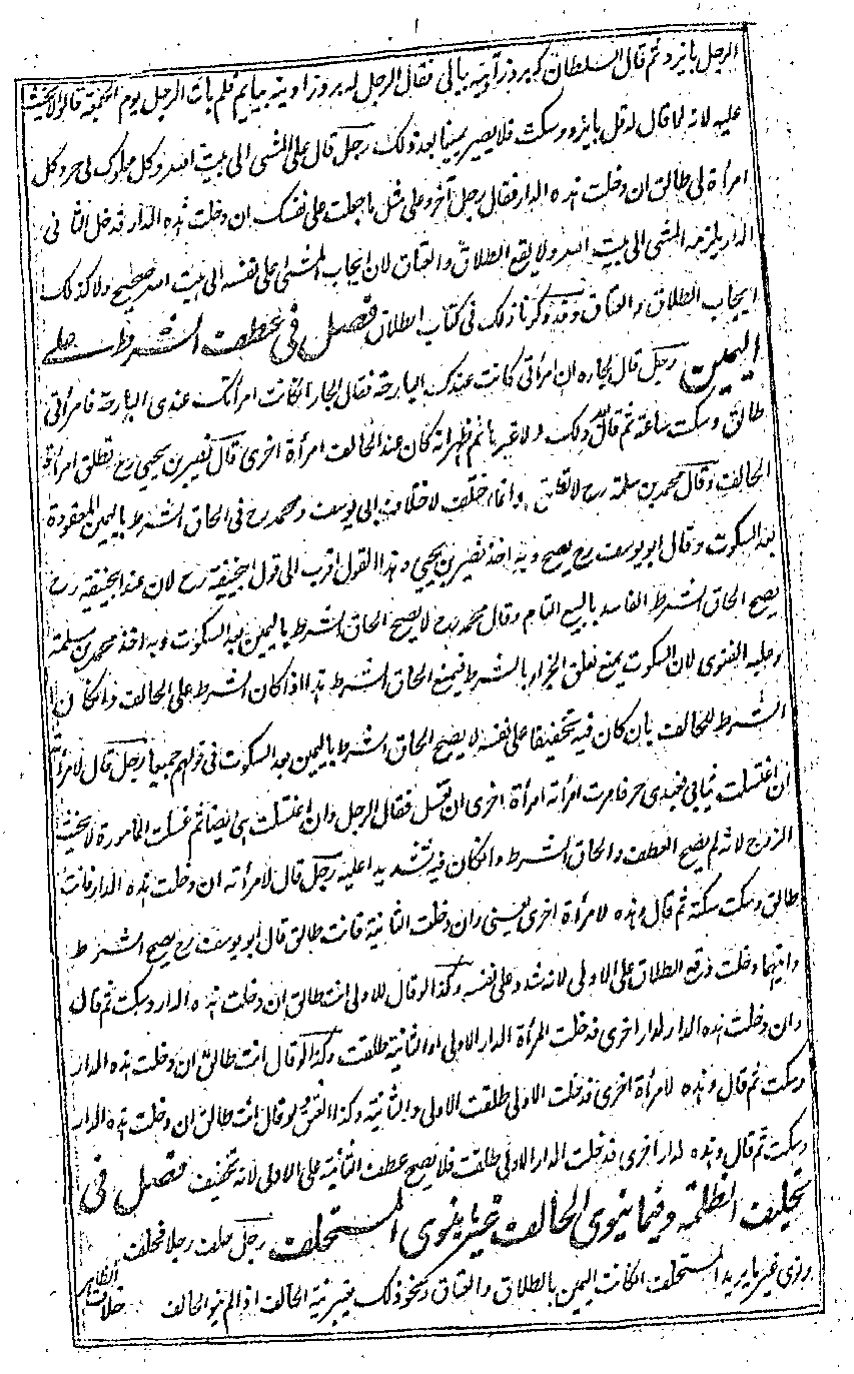 الرجل بايزد ثم قال السلطان كه بروز آوينه بيائى فقال الرجل له بروز اوينه بيايم فلم يات الرجل يوم الجمعة قالوا لا يحنث
عليه لانه لما قال له قل بايزد وسكت فلا يصير يمينا بعد ذلك رجل قال على المشى الى بيت الله وكل مملوك لى حر وكل
امرأة لى طالق ان دخلت هذه الدار فقال رجل آخر وعلى مثل ما جعلت على نفسك ان دخلت هذه الدار فدخل الثانى
الدار يلزمه المشى الى بيت الله ولا يقع الطلاق والعتاق لان ايجاب المشى على نفسه الى بيت الله صحيح ولا كذلك
ايجاب الطلاق والعتاق وقد ذكرنا ذلك فى كتاب الطلاق فصل فى عطف الشرط على
اليمين رجل قال لجاره ان امرأتى كانت عندك البارحة فقال الجار ان كانت امرأتك عندى البارحة فامرأتى
طالق وسكت ساعة ثم قال ولا غيرها ثم ظهر انه كان عند الحالف امرأة اخرى قال نصير بن يحيى رح تطلق امرأة
الحالف وقال محمد بن سلمة رح لا تطلق وانما اختلفا لاختلاف ابى يوسف ومحمد رح فى الحاق الشرط باليمين المعقودة
بعد السكوت وقال ابو يوسف رح يصح وبه اخذ نصير بن يحيى وهذا القول اقرب الى قول ابيحنيفة رح لان عند ابيحنيفة رح
يصح الحاق الشرط الفاسد بالبيع التام وقال محمد رح لا يصح الحاق الشرط باليمين بعد السكوت وبه اخذ محمد بن سلمة
وعليه الفتوى لان السكوت يمنع تعلق الجزاء بالشرط فيمنع الحاق الشرط هذا اذا كان الشرط على الحالف وان كان
الشرط للحالف بان كان فيه تخفيفا على نفسه لا يصح الحاق الشرط باليمين بعد السكوت فى قولهم جميعا رجل قال لامرأته
ان اغتسلت ثيابى فعبدى حر فامرت امرأته امرأة اخرى ان تغسل فقال الرجل وان اغتسلت هى ايضا ثم غسلت المامورة لا يحنث
الزوج لانه لم يصح العطف والحاق الشرط وان كان فيه تشديدا عليه رجل قال لامرأته ان دخلت هذه الدار فانت
طالق وسكت سكتة ثم قال وهذه لامرأة اخرى يعنى وان دخلت الثانية فانت طالق قال ابو يوسف رح يصح الشرط
وايتهما دخلت وقع الطلاق على الاولى لانه شدد على نفسه وكذا لو قال للاولى انت طالق ان دخلت هذه الدار وسكت ثم قال
وان دخلت هذه الدار لدار اخرى فدخلت المرأة الدار الاولى او الثانية طلقت وكذا لو قال انت طالق ان دخلت هذه الدار
وسكت ثم قال وهذه لامرأة اخرى فدخلت الاولى طلقت الاولى والثانية وكذا العتق ولو قال انت طالق ان دخلت هذه الدار
وسكت ثم قال وهذه لدار اخرى فدخلت الدار الاولى طلقت فلا يصح عطف الثانية على الاولى لانه تخفيف فصل فى
تحليف الظلمة وفيما ينوى الحالف غير ما ينوى المستحلف رجل حلف رجلا فحلف
ونوى غير ما يريد المستحلف ان كانت اليمين بالطلاق والعتاق ونحو ذلك يعتبر نية الحالف اذا لم ينو الحالف
خلاف الظاهر